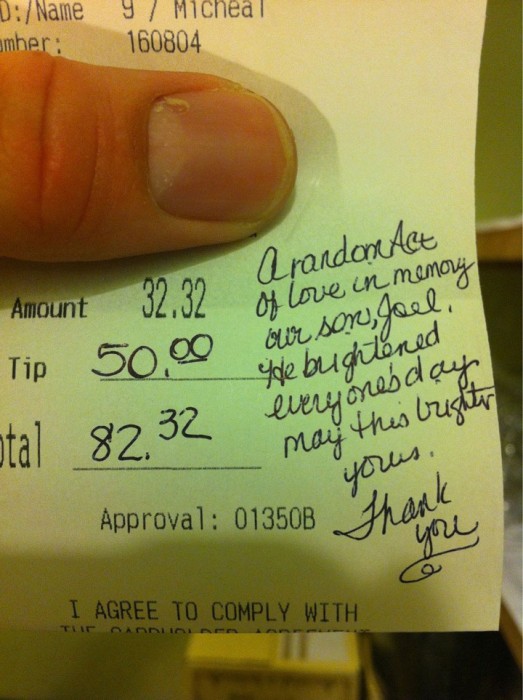 D:/Name 9 / Micheal
umber: 160804
Amount 32.32
Tip 50.00
otal 82.32
A random Act
of love in memory
our son, Joel.
He brightened
everyone's day
may this brighten
yours.
Thank
you
Approval: 01350B
I AGREE TO COMPLY WITH
THE CARDHOLDER AGREEMENT